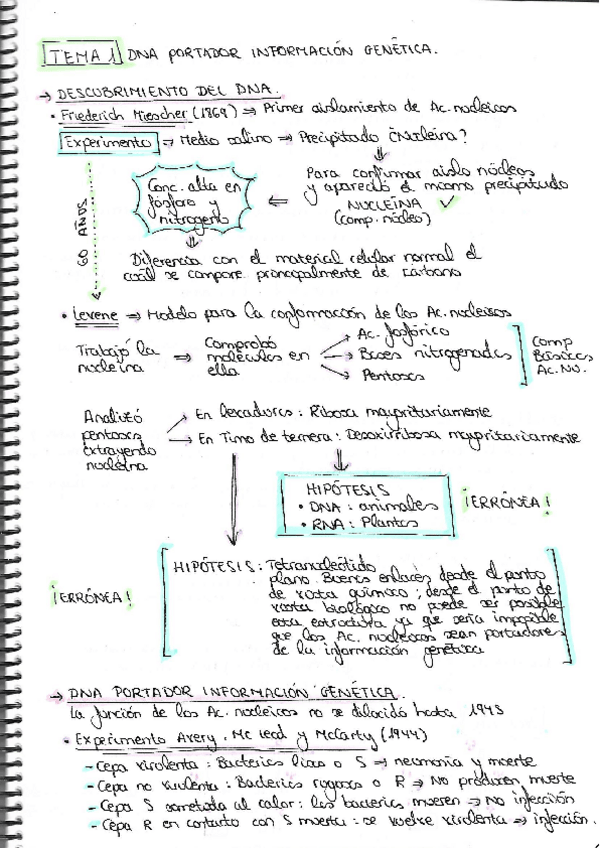 TEMA 1 DNA PORTADOR INFORMACIÓN GENÉTICA.
→ DESCUBRIMIENTO DEL DNA.
• Friederich Miescher (1869) ⇒ Primer aislamiento de Ac. nucleicos
Experimento ⇒ Medio salino ⇒ Precipitado ¿Nucleina?
Para confirmar aislo núcleos
y apareció el mismo precipitado
NUCLEÍNA ✓
(comp. núcleo)
⇐
Conc. alta en
fósforo y
nitrogeno
60 AÑOS
Diferencia con el material celular normal el
cuál se compone principalmente de carbono
• Levene ⇒ Modelo para la conformación de los Ac. nucleicos
Trabajó la
nucleína
⇒ Comprobó
moléculas en
ella
→ Ac. fosfórico
→ Bases nitrogenadas
→ Pentosas
Comp
Básicos
Ac. NU.
Analizó
pentosas
extrayendo
nucleína
→ En levaduras: Ribosa mayoritariamente
→ En Timo de ternera: Desoxirribosa mayoritariamente
HIPÓTESIS
• DNA: animales
• RNA: Plantas
¡ERRÓNEA!
¡ERRÓNEA!
HIPÓTESIS: Tetranucleótido
plano. Buenos enlaces desde el punto
de vista químico; desde el punto de
vista biológico no puede ser posible
esta estructura ya que sería imposible
que los Ac. nucleicos sean portadores
de la información genética
→ DNA PORTADOR INFORMACIÓN GENÉTICA.
La función de los Ac. nucleicos no se dilucidó hasta 1945
• Experimento Avery, Mc Leod y McCarty (1944)
- Cepa virolenta: Bacterias lisas o S ⇒ neumonía y muerte
- Cepa no virulenta: Bacterias rugosas o R ⇒ No producen muerte
- Cepa S sometida al calor: las bacterias mueren ⇒ No infección
- Cepa R en contacto con S muerta: se vuelve virolenta ⇒ infección.